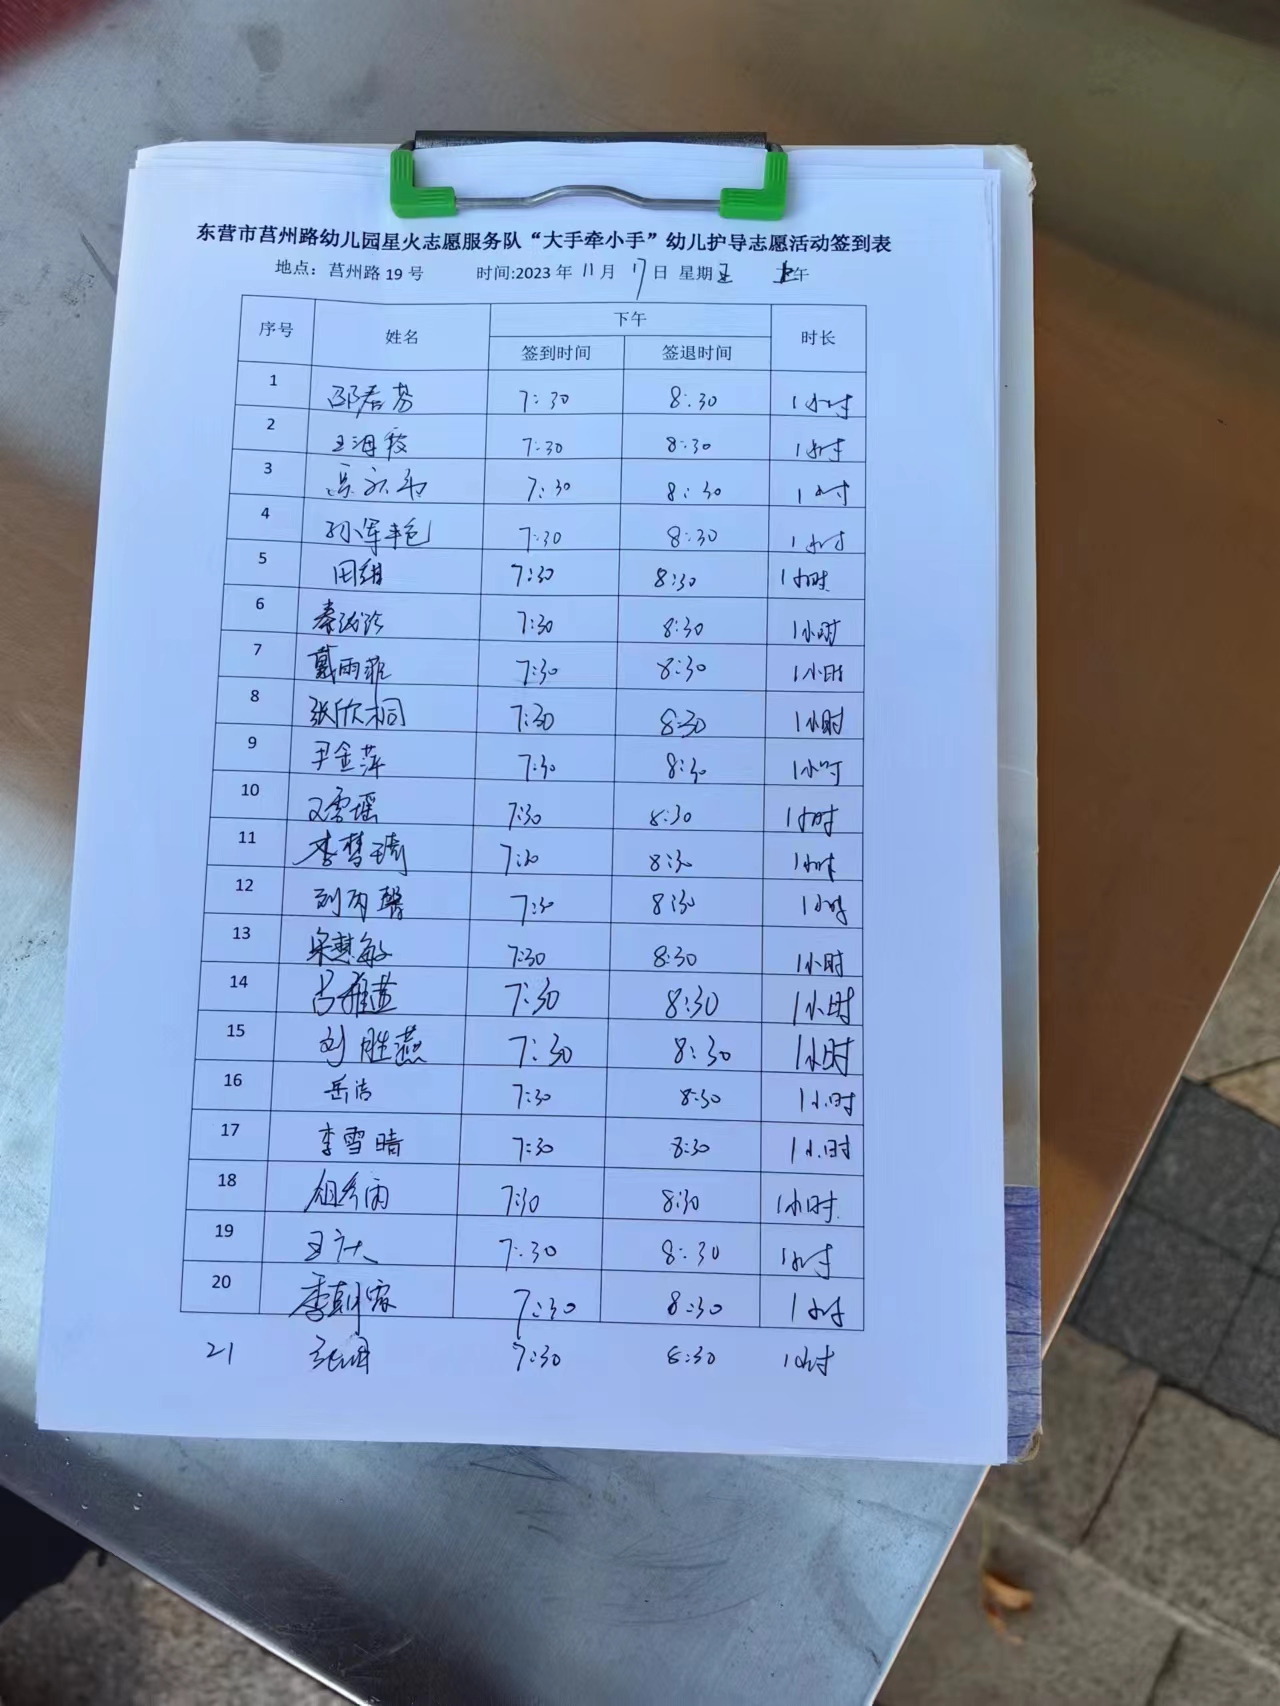 东营市莒州路幼儿园星火志愿服务队“大手牵小手”幼儿护导志愿活动签到表
地点：莒州路 19 号 时间:2023 年 11 月 17 日 星期五 上午
序号 姓名 下午 时长
签到时间 签退时间
1 邵君芬 7:30 8:30 1小时
2 王海霞 7:30 8:30 1小时
3 7:30 8:30 1小时
4 孙军艳 7:30 8:30 1小时
5 田甜 7:30 8:30 1小时
6 秦 7:30 8:30 1小时
7 戴雨菲 7:30 8:30 1小时
8 张欣桐 7:30 8:30 1小时
9 尹金萍 7:30 8:30 1小时
10 雪瑶 7:30 8:30 1小时
11 李梦琦 7:30 8:30 1小时
12 刘雨馨 7:30 8:30 1小时
13 梁慧敏 7:30 8:30 1小时
14 吕雅 7:30 8:30 1小时
15 刘胜燕 7:30 8:30 1小时
16 岳洁 7:30 8:30 1小时
17 李雪晴 7:30 8:30 1小时
18 7:30 8:30 1小时
19 王 7:30 8:30 1小时
20 季朝霞 7:30 8:30 1小时
21 张 7:30 8:30 1小时